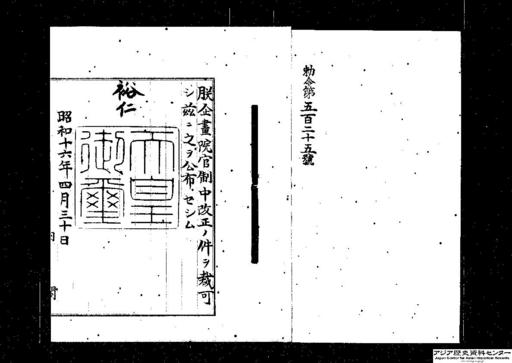 勅令第五百二十五號
朕企畫院官制中改正ノ件ヲ裁可
シ茲ニ之ヲ公布セシム
裕仁
天皇
御璽
昭和十六年四月三十日
内
アジア歴史資料センター
Japan Center for Asian Historical Records